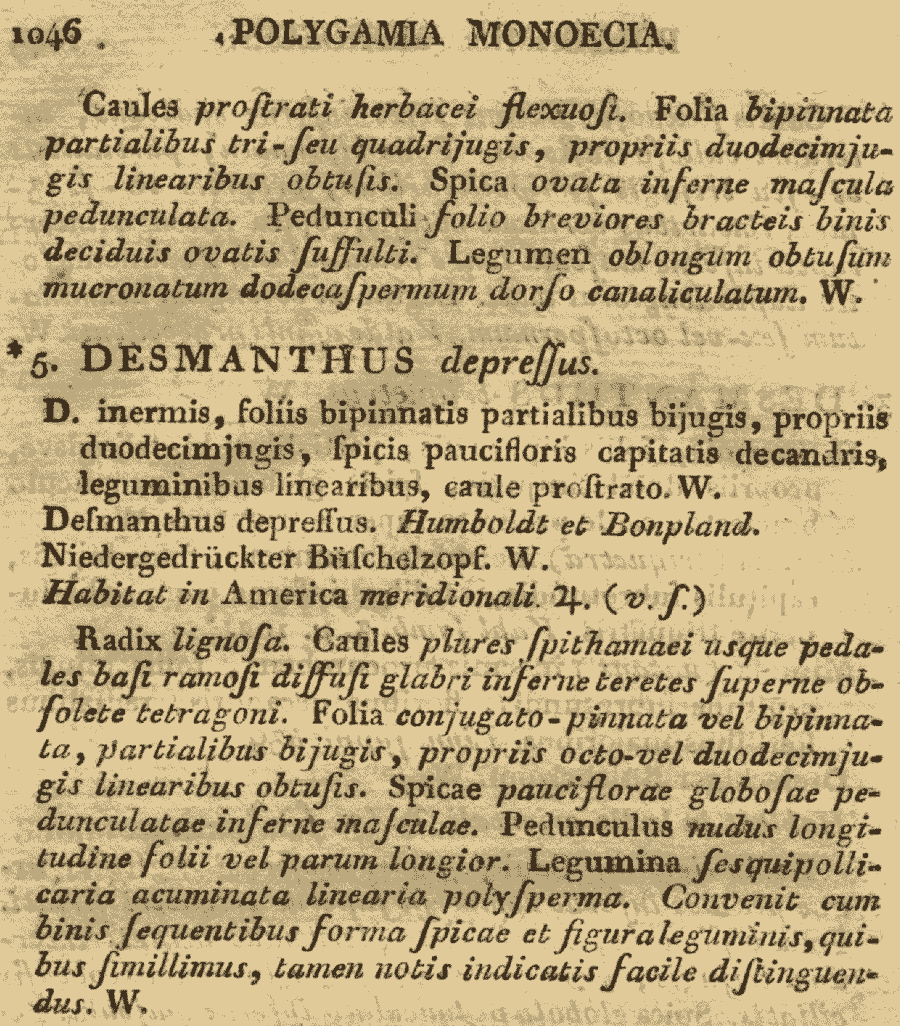 1046 . POLYGAMIA MONOECIA.
Caules proſtrati herbacei flexuoſi. Folia bipinnata
partialibus tri-ſeu quadrijugis, propriis duodecimju-
gis linearibus obtuſis. Spica ovata inferne maſcula
pedunculata. Pedunculi folio breviores bracteis binis
deciduis ovatis ſuffulti. Legumen oblongum obtuſum
mucronatum dodecaſpermum dorſo canaliculatum. W.
* 5. DESMANTHUS depreſſus.
D. inermis, foliis bipinnatis partialibus bijugis, propriis
duodecimjugis, ſpicis paucifloris capitatis decandris,
leguminibus linearibus, caule proſtrato. W.
Deſmanthus depreſſus. Humboldt et Bonpland.
Niedergedrückter Büſchelzopf. W.
Habitat in America meridionali. ♃. (v. ſ.)
Radix lignoſa. Caules plures ſpithamaei usque peda-
les baſi ramoſi diffuſi glabri inferne teretes ſuperne ob-
ſolete tetragoni. Folia conjugato-pinnata vel bipinna-
ta, partialibus bijugis, propriis octo-vel duodecimju-
gis linearibus obtuſis. Spicae pauciflorae globoſae pe-
dunculatae inferne maſculae. Pedunculus nudus longi-
tudine folii vel parum longior. Legumina ſesquipolli-
caria acuminata linearia polyſperma. Convenit cum
binis ſequentibus forma ſpicae et figura leguminis, qui-
bus ſimillimus, tamen notis indicatis facile diſtinguen-
dus. W.